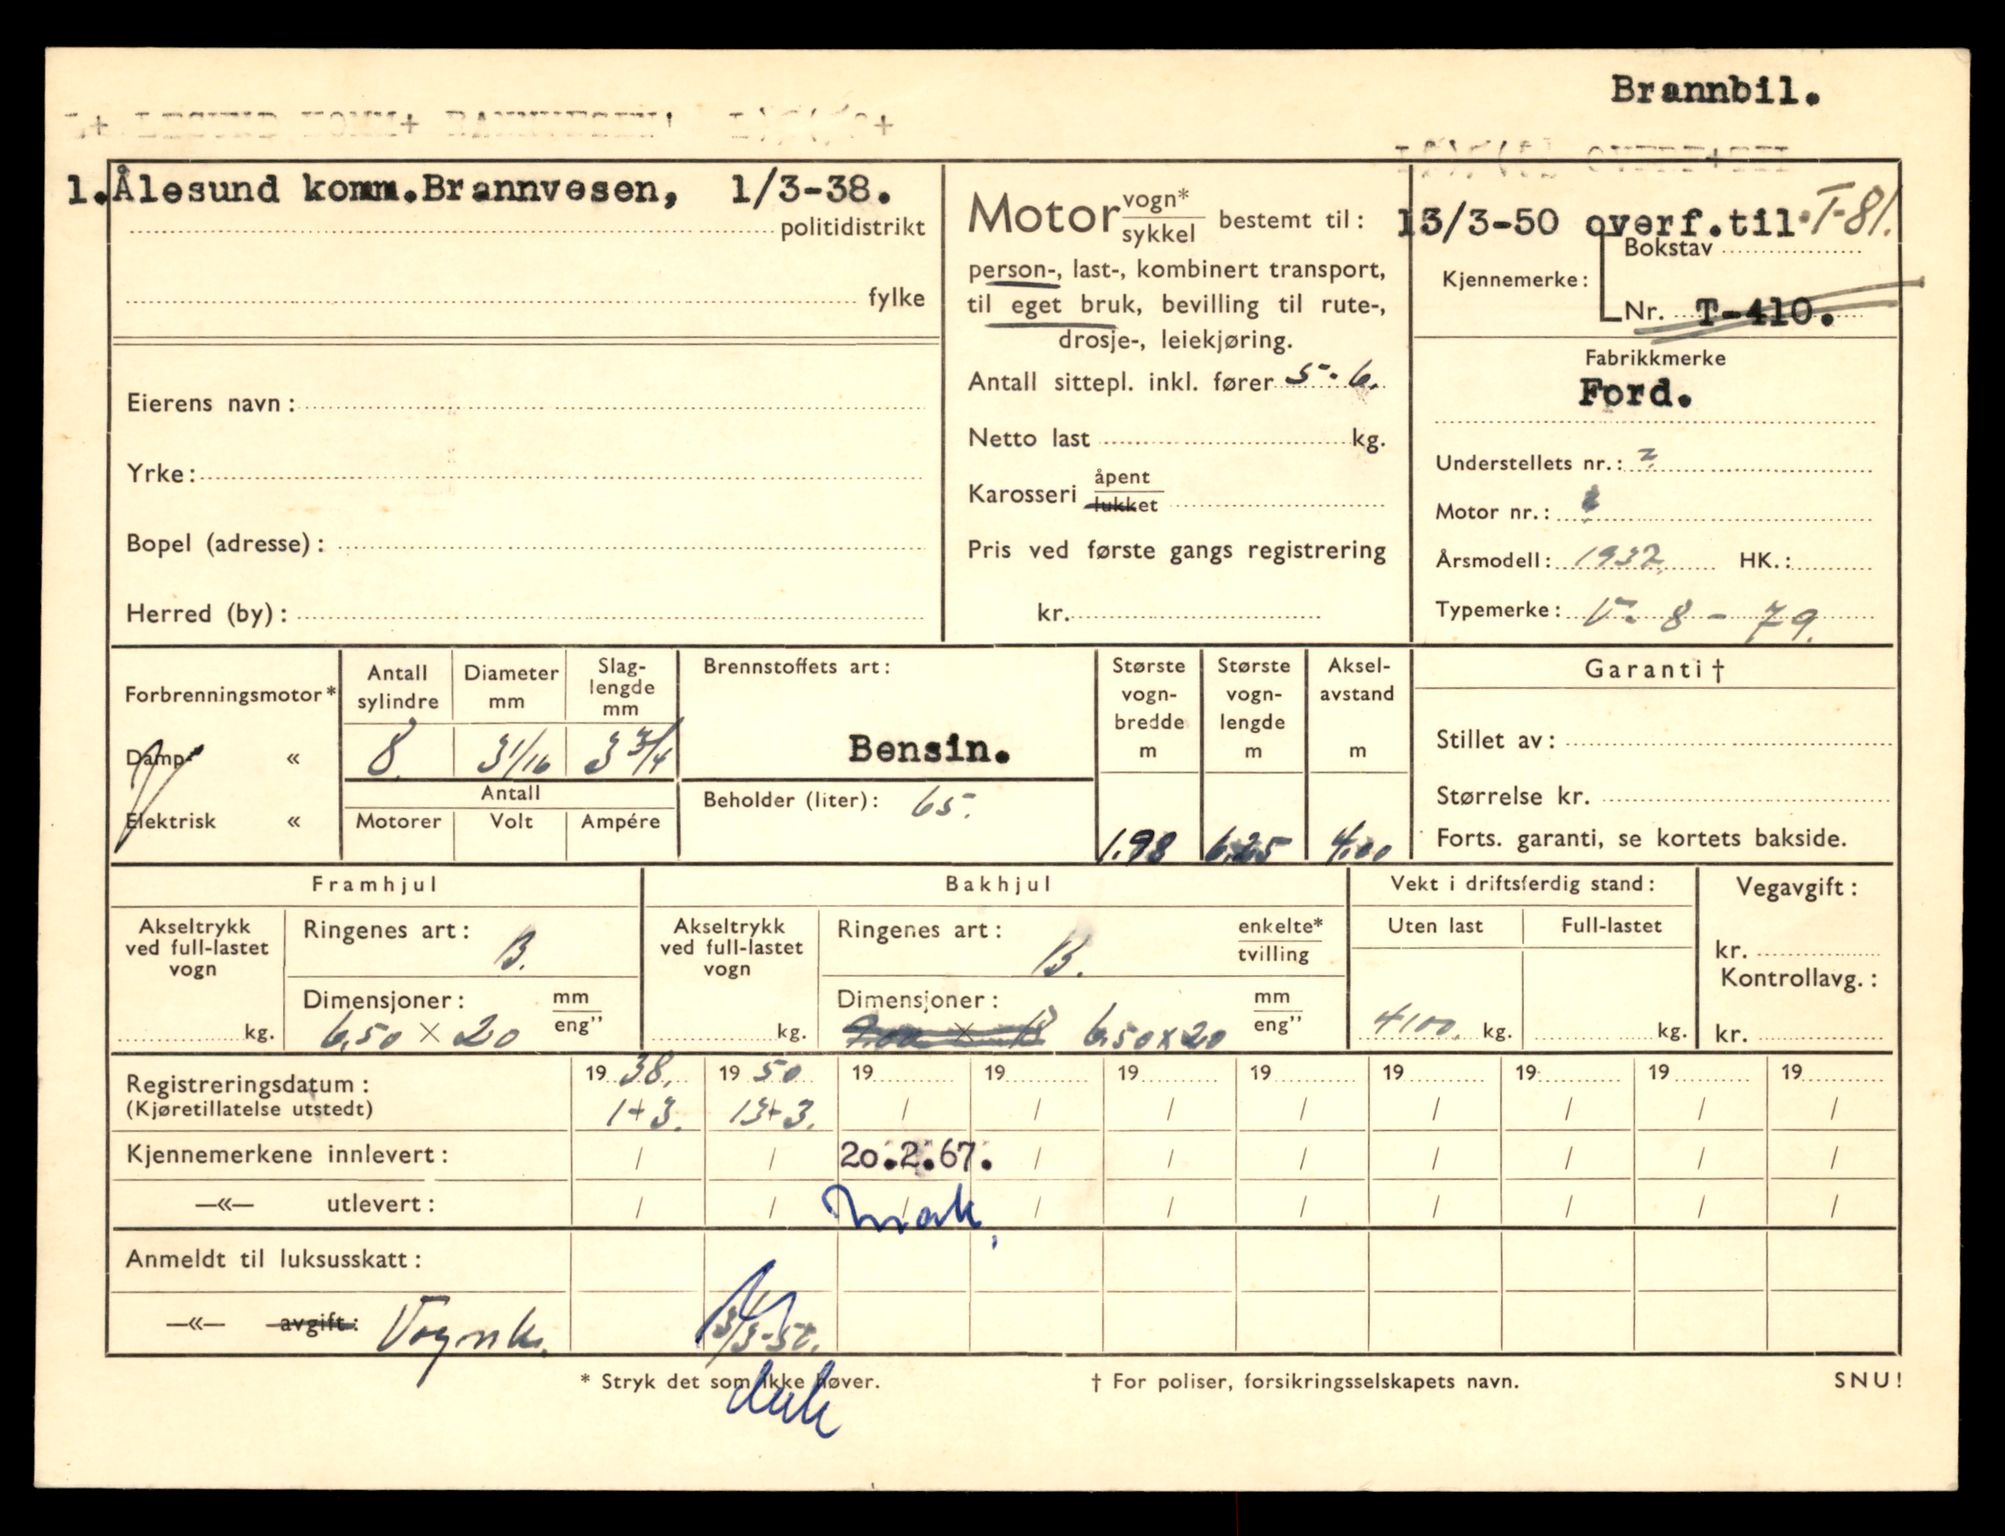 Brannbil.
1. Ålesund komm.Brannvesen, 1/3-38.
politidistrikt
fylke
Eierens navn:
Yrke:
Bopel (adresse):
Herred (by):
Motor vogn* / sykkel bestemt til:
person-, last-, kombinert transport,
til eget bruk, bevilling til rute-,
drosje-, leiekjøring.
Antall sittepl. inkl. fører 5-6.
Netto last kg.
Karosseri åpent / lukket
Pris ved første gangs registrering
kr.
13/3-50 overf.til T-81.
Bokstav
Kjennemerke:
Nr. T-410.
Fabrikkmerke
Ford.
Understellets nr.: ?
Motor nr.:
Årsmodell: 1937. HK.:
Typemerke: V-8-79.
Forbrenningsmotor*
Damp- «
Elektrisk «
Antall sylindre
8.
Diameter mm
3 1/16
Slag-lengde mm
3 3/4
Antall
Motorer Volt Ampére
Brennstoffets art:
Bensin.
Beholder (liter): 65.
Største vogn-bredde m
1.98
Største vogn-lengde m
6.25
Aksel-avstand m
4.00
Garanti †
Stillet av:
Størrelse kr.
Forts. garanti, se kortets bakside.
Framhjul
Akseltrykk ved full-lastet vogn
kg.
Ringenes art: B.
Dimensjoner: mm / eng”
6,50 × 20
Bakhjul
Akseltrykk ved full-lastet vogn
kg.
Ringenes art: B. enkelte* / tvilling
Dimensjoner: mm / eng”
6,50 x 20
Vekt i driftsferdig stand:
Uten last Full-lastet
4100. kg. kg.
Vegavgift:
kr.
Kontrollavg.:
kr.
Registreringsdatum: 19 38. 19 50 19 19 19 19 19 19 19 19
(Kjøretillatelse utstedt) 1+3. 13+3. / / / / / / / /
Kjennemerkene innlevert: / / 20.2.67. / / / / / / /
—«— utlevert: / / / / / / / / / /
Anmeldt til luksusskatt:
—«— avgift: Vognk. 13/3-50.
* Stryk det som ikke høver.
† For poliser, forsikringsselskapets navn.
SNU!